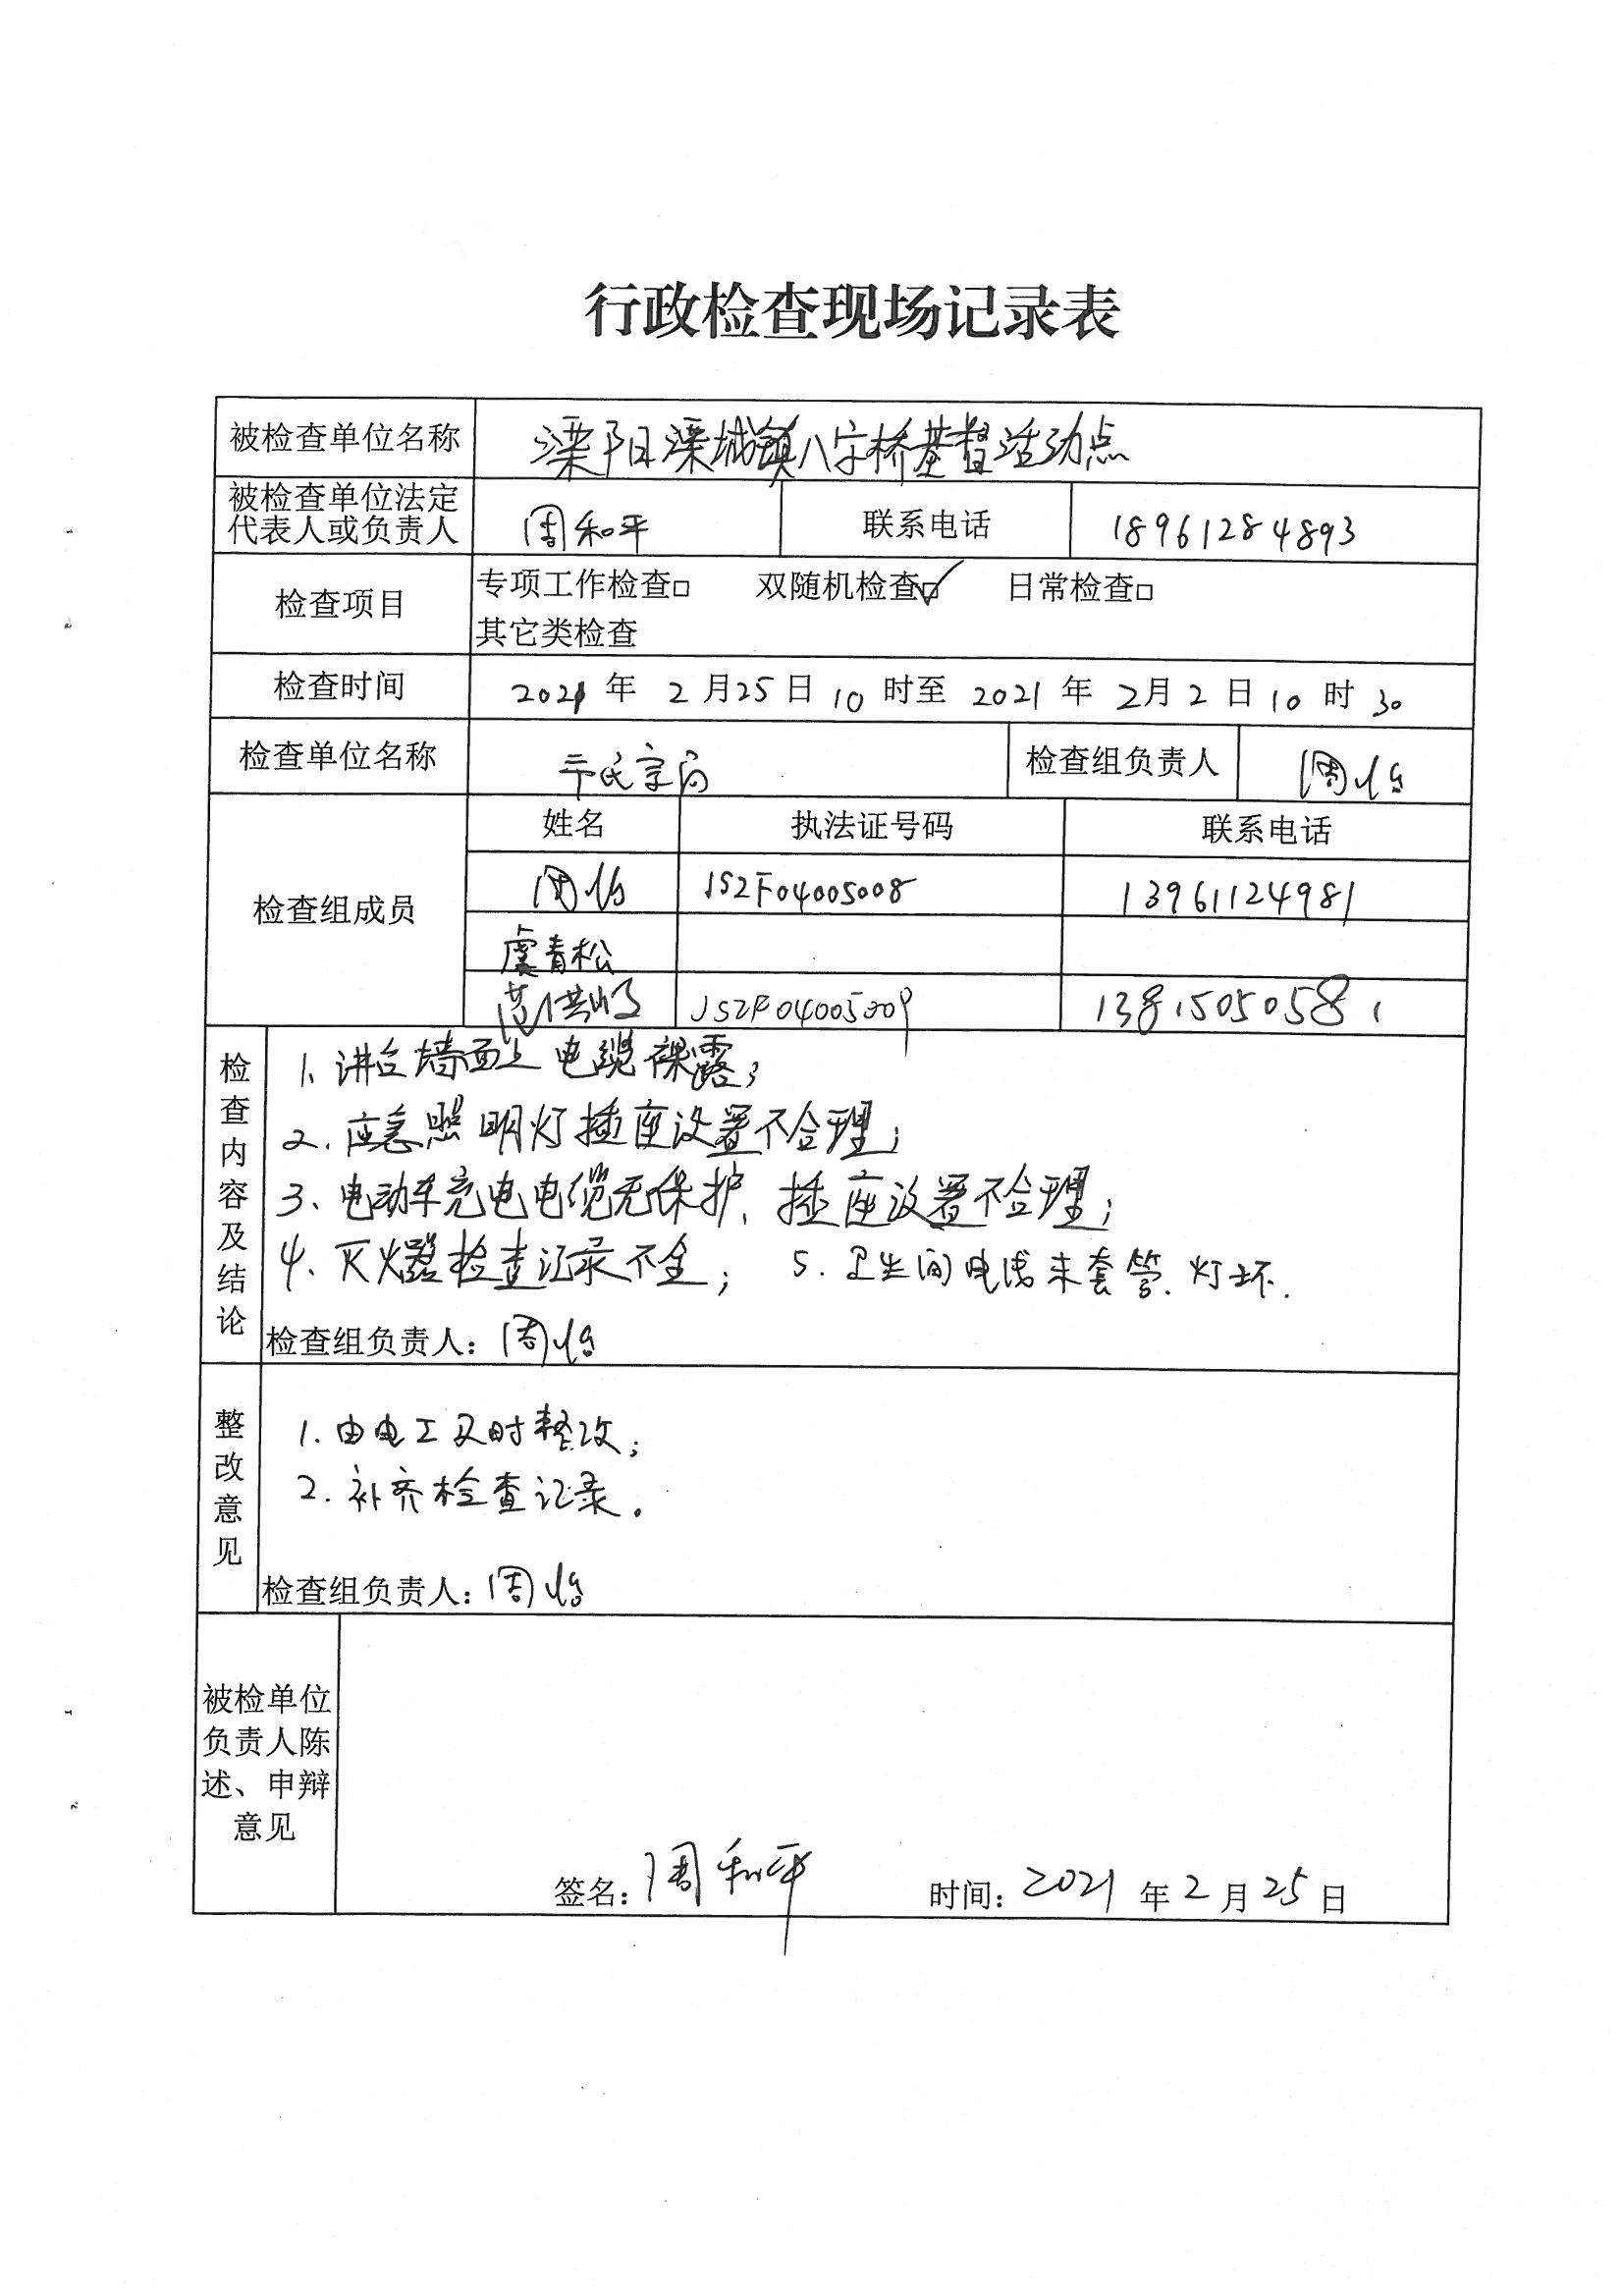 行政检查现场记录表
被检查单位名称 溧阳溧城镇八字桥基督活动点
被检查单位法定代表人或负责人 周和平 联系电话 18961284893
检查项目 专项工作检查□ 双随机检查☑ 日常检查□
其它类检查
检查时间 2021 年 2 月 25 日 10 时至 2021 年 2 月 2 日 10 时 30
检查单位名称 市民宗局 检查组负责人 周怡
检查组成员 姓名 执法证号码 联系电话
周怡 JSZF04005008 13961124981
虞青松
JSZF04005009 13815050581
检查内容及结论
1、讲台墙面上电缆裸露;
2.应急照明灯插座设置不合理;
3、电动车充电电缆无保护、插座设置不合理;
4、灭火器检查记录不全; 5.卫生间电线未套管.灯坏.
检查组负责人:周怡
整改意见
1.由电工及时整改;
2.补齐检查记录。
检查组负责人:周怡
被检单位负责人陈述、申辩意见
签名:周和平 时间:2021 年 2 月 25 日